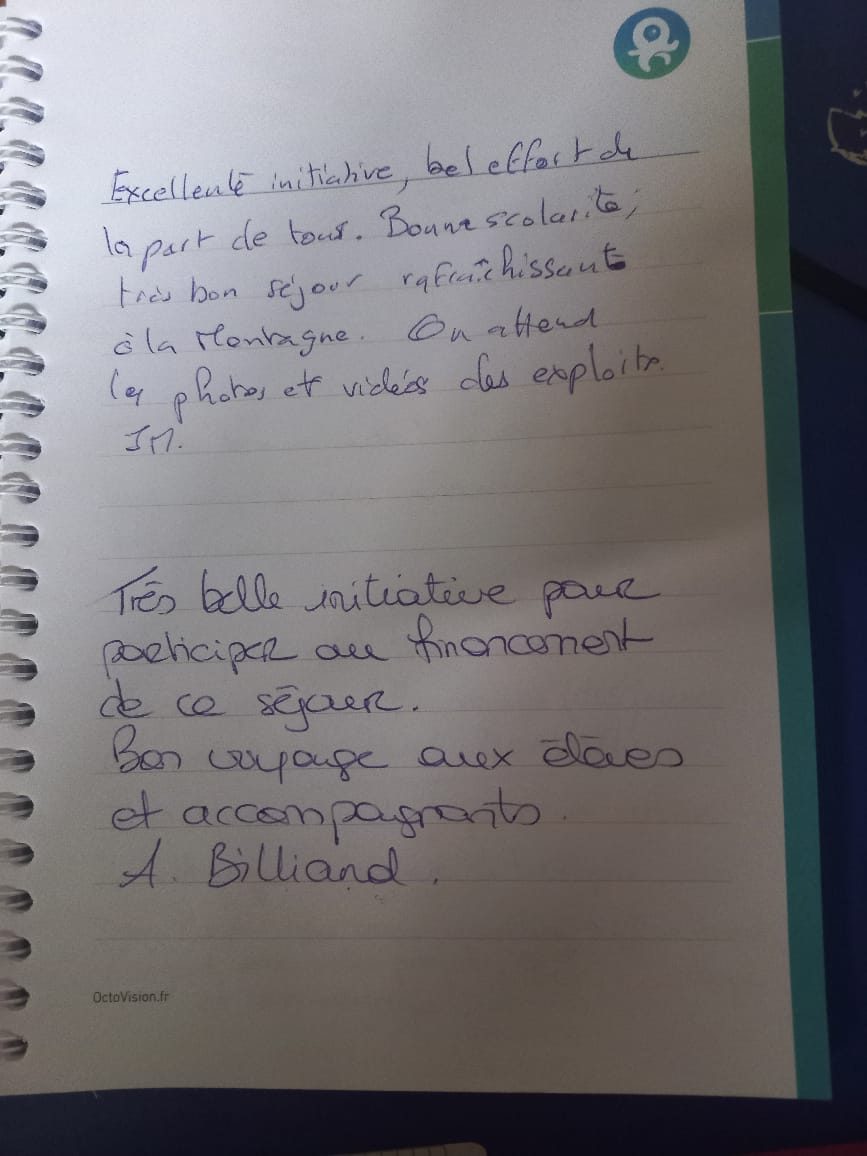 Excellente initiative, bel effort de
la part de tous. Bonne scolarité,
très bon séjour rafraîchissant
à la Montagne. On attend
les photos et vidéos des exploits.
JM.
Très belle initiative pour
participer au financement
de ce séjour.
Bon voyage aux élèves
et accompagnants.
A. Billiand.
OctoVision.fr